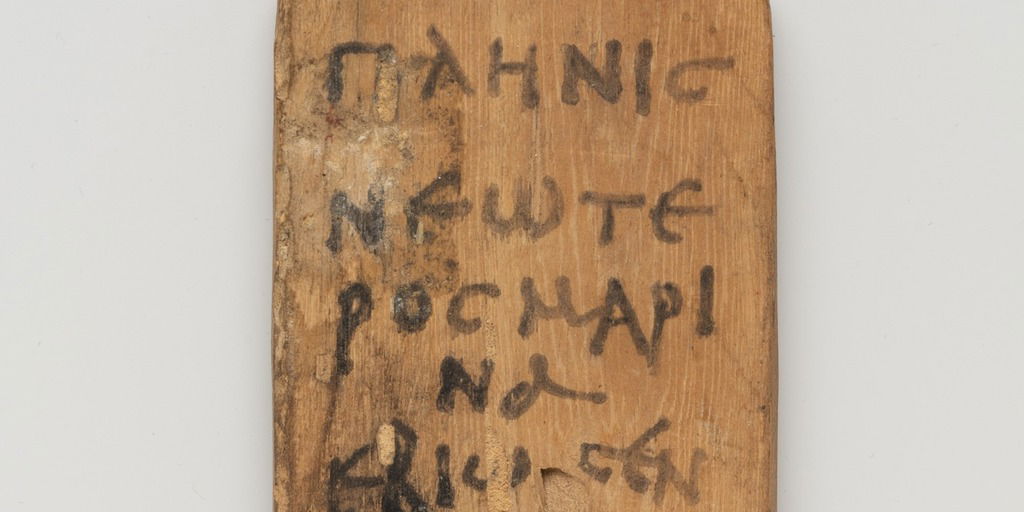 ΠΛΗΝΙϹ
ΝΕΩΤΕ
ΡΟϹΜΑΡΙ
ΝΑ
ΕΒΙΩϹΕΝ